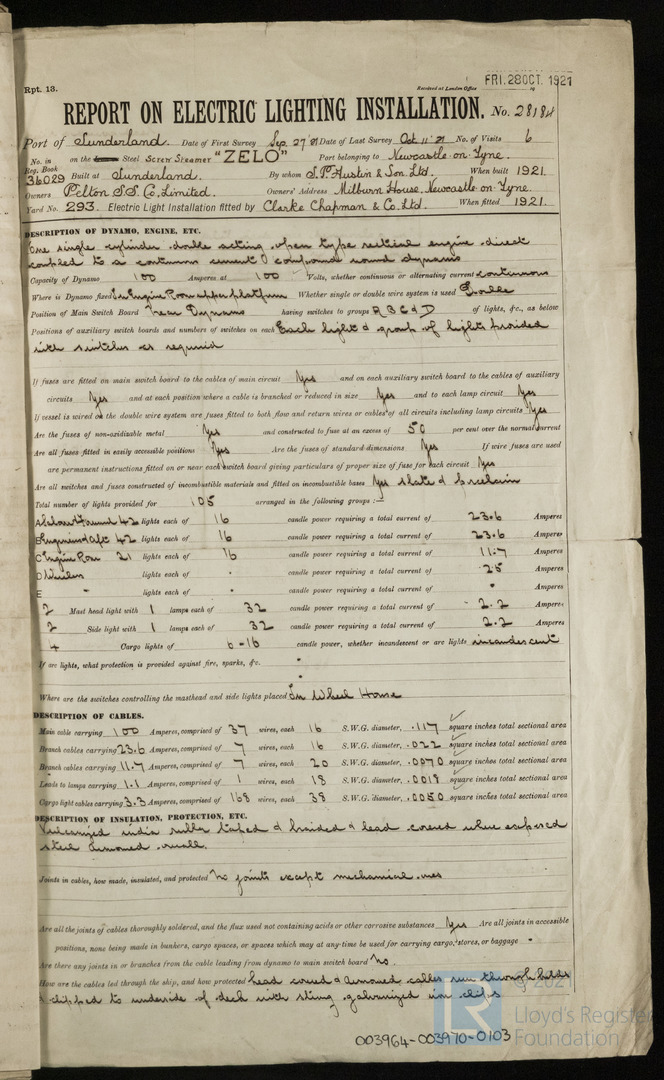 FRI. 28 OCT. 1921
Rpt. 13.
Received at London Office
REPORT ON ELECTRIC LIGHTING INSTALLATION. No. 28184
Port of Sunderland. Date of First Survey Sep. 27 '21 Date of Last Survey Oct 11 '21 No. of Visits 6
No. in Reg. Book on the Steel Screw Steamer "ZELO" Port belonging to Newcastle-on-Tyne.
36029 Built at Sunderland. By whom S. P. Austin & Son Ltd. When built 1921.
Owners Pelton S.S. Co. Limited. Owners' Address Milburn House, Newcastle-on-Tyne.
Yard No. 293. Electric Light Installation fitted by Clarke Chapman & Co. Ltd. When fitted 1921.
DESCRIPTION OF DYNAMO, ENGINE, ETC.
One single cylinder double acting open type vertical engine direct
coupled to a continuous current compound wound dynamo
Capacity of Dynamo 100 Amperes at 100 Volts, whether continuous or alternating current continuous
Where is Dynamo fixed In Engine Room upper platform Whether single or double wire system is used Double
Position of Main Switch Board Near Dynamo having switches to groups A B C & D of lights, &c., as below
Positions of auxiliary switch boards and numbers of switches on each Each light & group of lights provided
with switches as required
If fuses are fitted on main switch board to the cables of main circuit Yes and on each auxiliary switch board to the cables of auxiliary
circuits Yes and at each position where a cable is branched or reduced in size Yes and to each lamp circuit Yes
If vessel is wired on the double wire system are fuses fitted to both flow and return wires or cables of all circuits including lamp circuits Yes
Are the fuses of non-oxidizable metal Yes and constructed to fuse at an excess of 50 per cent over the normal current
Are all fuses fitted in easily accessible positions Yes Are the fuses of standard dimensions Yes If wire fuses are used
are permanent instructions fitted on or near each switch board giving particulars of proper size of fuse for each circuit Yes
Are all switches and fuses constructed of incombustible materials and fitted on incombustible bases Yes slate & porcelain
Total number of lights provided for 105 arranged in the following groups :—
A Saloon & Forward 42 lights each of 16 candle power requiring a total current of 23.6 Amperes
B Engineers & Aft 42 lights each of 16 candle power requiring a total current of 23.6 Amperes
C Engine Room 21 lights each of 16 candle power requiring a total current of 11.7 Amperes
D Wireless lights each of " candle power requiring a total current of 25 Amperes
E " lights each of " candle power requiring a total current of " Amperes
2 Mast head light with 1 lamps each of 32 candle power requiring a total current of 2.2 Amperes
2 Side light with 1 lamps each of 32 candle power requiring a total current of 2.2 Amperes
4 Cargo lights of 6-16 candle power, whether incandescent or arc lights incandescent
If arc lights, what protection is provided against fire, sparks, &c. "
Where are the switches controlling the masthead and side lights placed In Wheel House
DESCRIPTION OF CABLES.
Main cable carrying 100 Amperes, comprised of 37 wires, each 16 S.W.G. diameter, .117 square inches total sectional area
Branch cables carrying 23.6 Amperes, comprised of 7 wires, each 16 S.W.G. diameter, .022 square inches total sectional area
Branch cables carrying 11.7 Amperes, comprised of 7 wires, each 20 S.W.G. diameter, .0070 square inches total sectional area
Leads to lamps carrying 1.1 Amperes, comprised of 1 wires, each 18 S.W.G. diameter, .0018 square inches total sectional area
Cargo light cables carrying 3.3 Amperes, comprised of 168 wires, each 38 S.W.G. diameter, .0050 square inches total sectional area
DESCRIPTION OF INSULATION, PROTECTION, ETC.
Vulcanized india rubber taped & braided & lead covered where exposed
steel armoured overall.
Joints in cables, how made, insulated, and protected No joints except mechanical ones
Are all the joints of cables thoroughly soldered, and the flux used not containing acids or other corrosive substances Yes Are all joints in accessible
positions, none being made in bunkers, cargo spaces, or spaces which may at any time be used for carrying cargo, stores, or baggage "
Are there any joints in or branches from the cable leading from dynamo to main switch board No.
How are the cables led through the ship, and how protected Lead covered & armoured cables run through holds
& clipped to underside of deck with strong galvanized iron clips
© 2021
Lloyd's Register
Foundation
003964-003970-0103